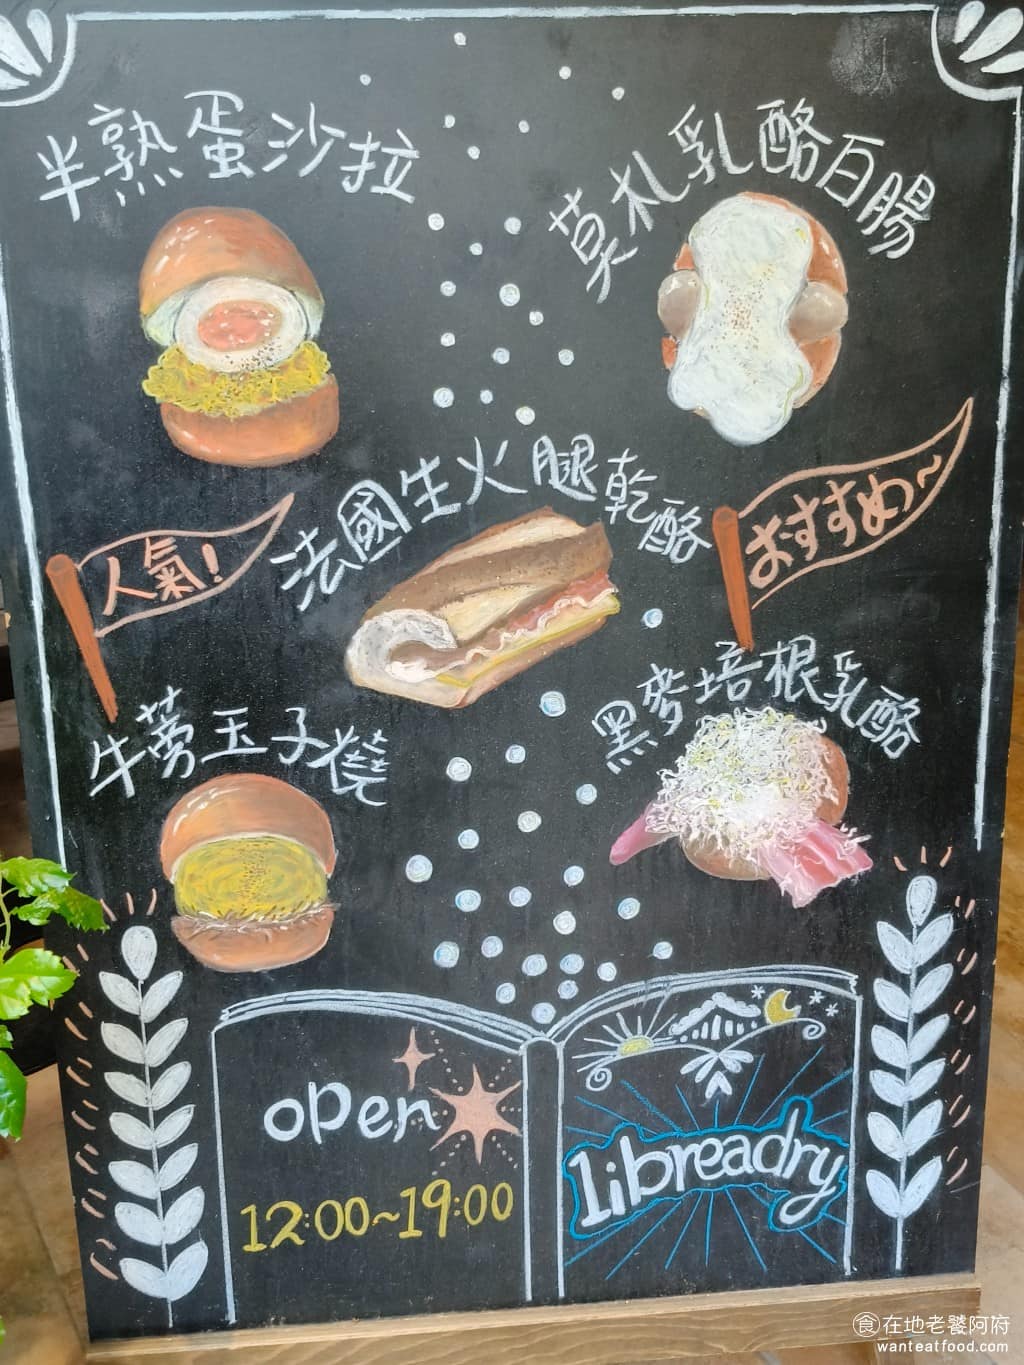 半熟蛋沙拉
莫札乳酪百腸
法國生火腿乾酪
人氣!
おすすめ~
牛蒡玉子燒
黑麥培根乳酪
open
12:00~19:00
libreadry
食在地老饕阿府
wanteatfood.com